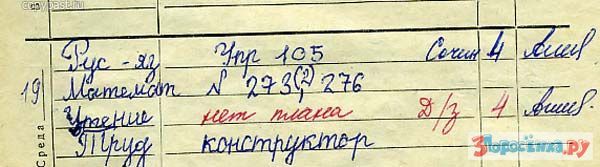 copypast.ru
Среда 19
Рус-яз Упр 105 Сочин 4
Математ N 273(2), 276
Чтение нет плана Д/з 4
Труд конструктор
Поросёнка.ру